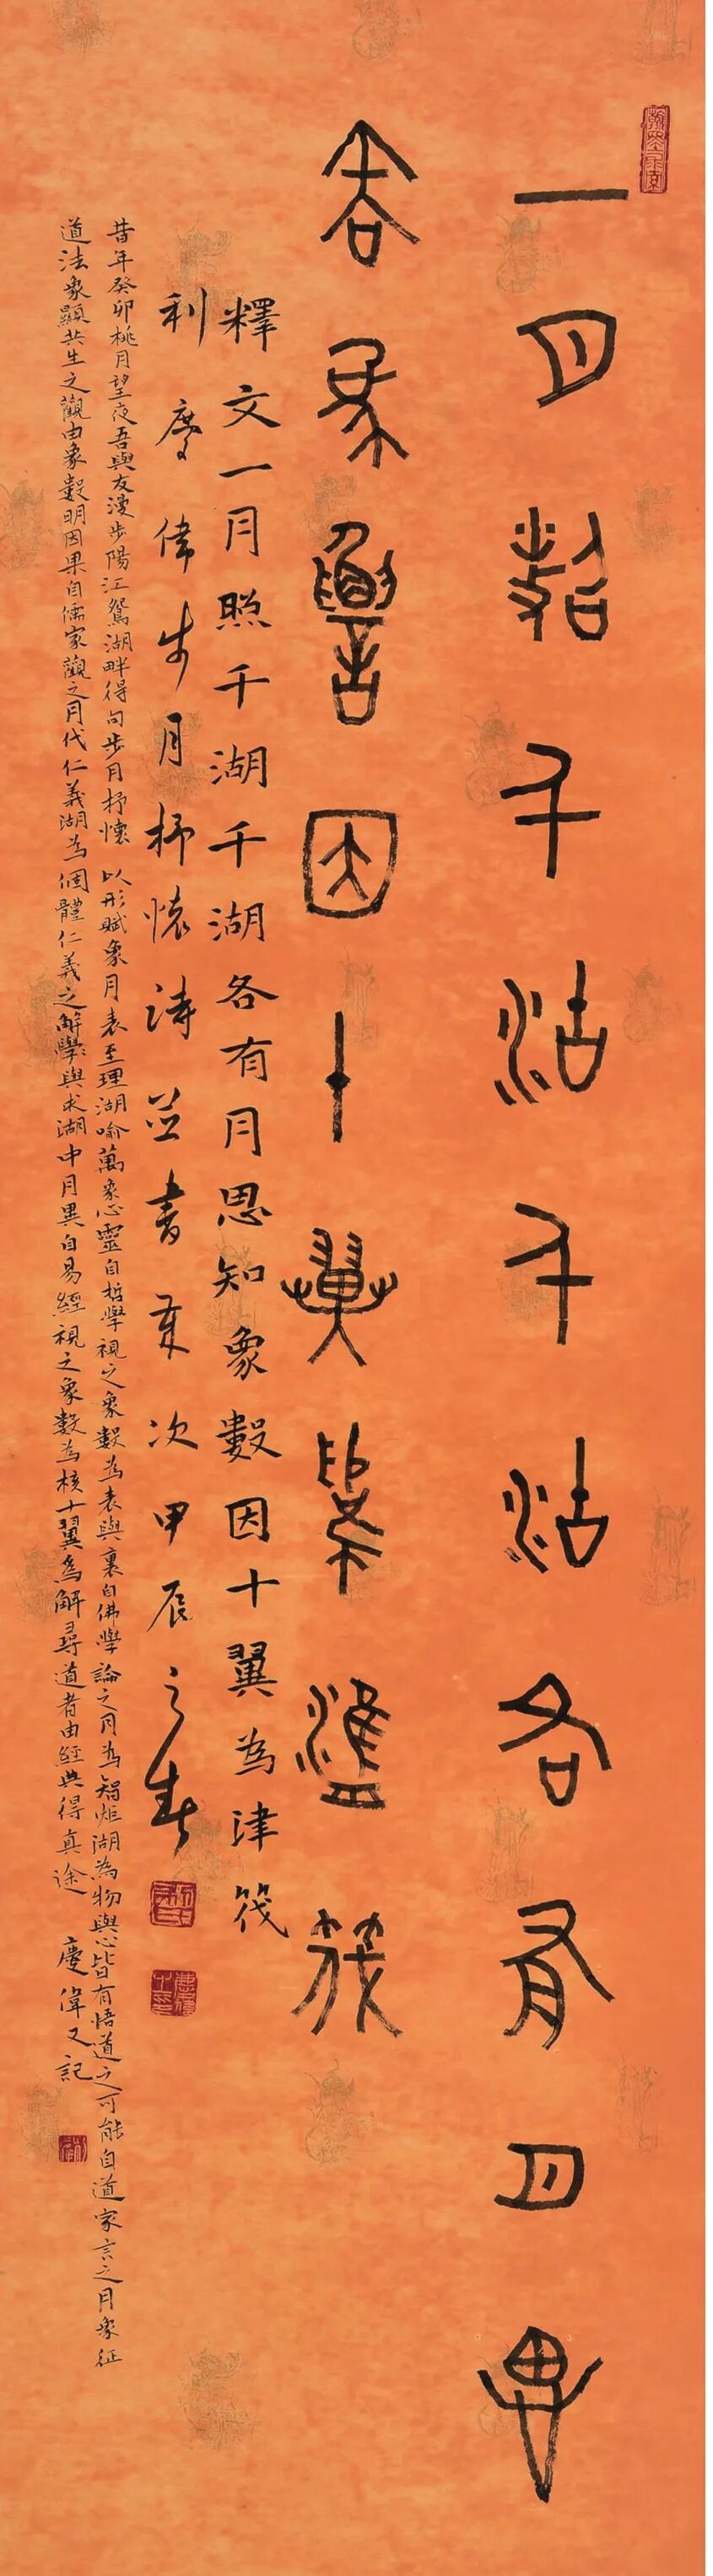 一月照千湖千湖各有月思
知象數因十翼為津筏
釋文一月照千湖千湖各有月思知象數因十翼為津筏
利慶偉步月抒懷詩並書歲次甲辰之春
昔年癸卯桃月望夜吾與友漫步陽江鴛湖畔得句步月抒懷 以形賦象月表至理湖喻萬象心靈自哲學視之象數為表與裏自佛學論之月為智炬湖為物與心皆有悟道之可能自道家言之月象征
道法象顯共生之觀由象數明因果自儒家觀之月代仁義湖為個體仁義之解學與求湖中月異自易經視之象數為核十翼為解尋道者由經典得真途 慶偉又記